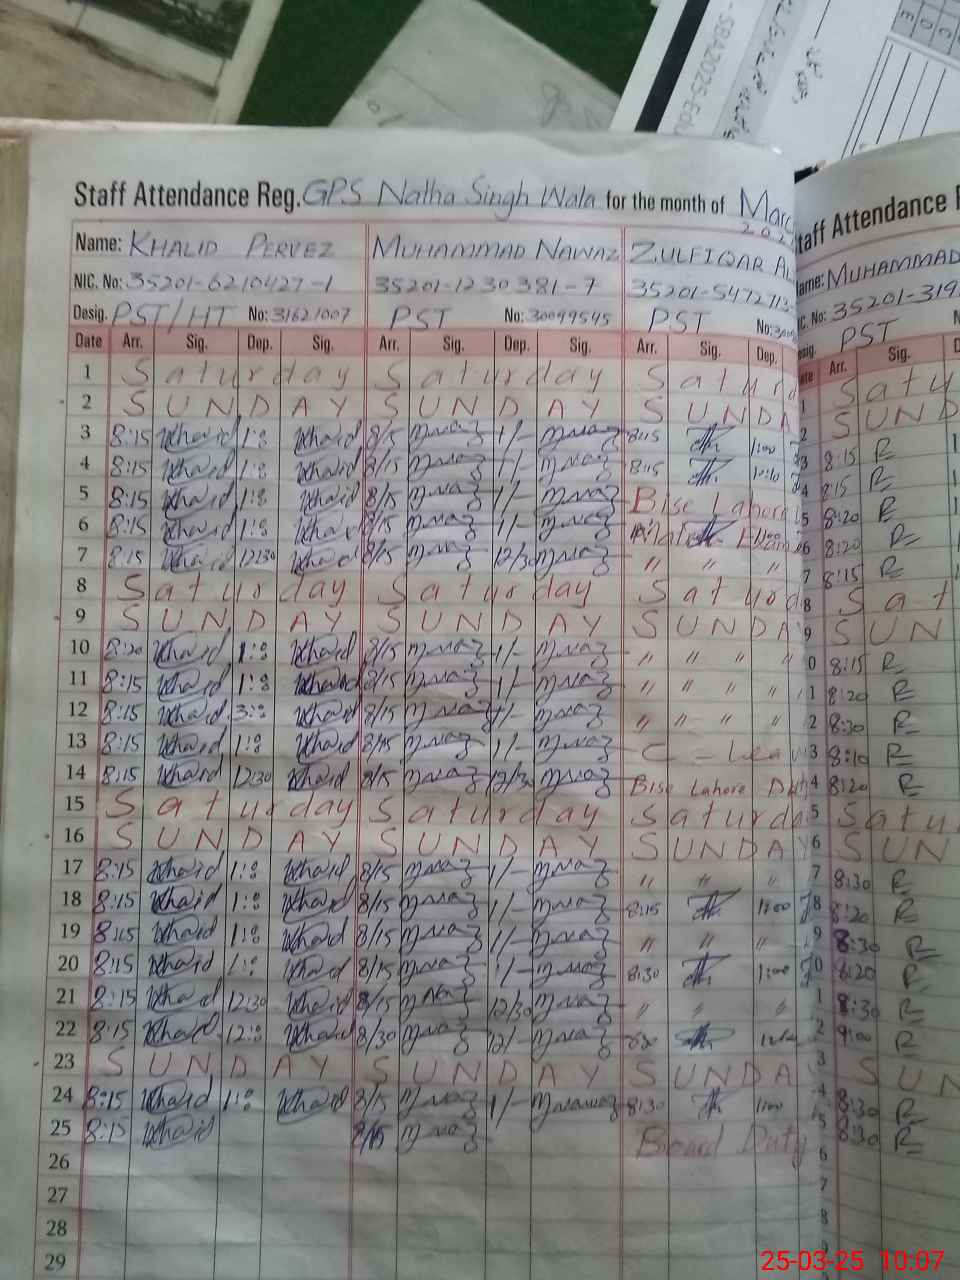 -SBA2025-Edu
Staff Attendance Reg. GPS Natha Singh Wala for the month of Marc
202
Name: KHALID PERVEZ MUHAMMAD NAWAZ ZULFIQAR AL
NIC. No: 35201-6210427-1 35201-1230381-7 35201-547211
Desig. PST/HT No: 31621007 PST No: 30099545 PST No:
Date Arr. Sig. Dep. Sig. Arr. Sig. Dep. Sig. Arr. Sig. Dep.
1 Saturday Saturday Saturd
2 SUNDAY SUNDAY SUNDA
3 8:15 Khalid 1:0 Khalid 8/15 MNaz 1/- MNaz 8:15 1:00
4 8:15 Khalid 1:0 Khalid 8/15 MNaz 1/- MNaz 8:15
5 8:15 Khalid 1:0 Khalid 8/15 MNaz 1/- MNaz Bise Lahore
6 8:15 Khalid 1:0 Khalid 8/15 MNaz 1/- MNaz Exam
7 8:15 Khalid 12:30 Khalid 8/15 MNaz 12/30 MNaz " " "
8 Saturday Saturday Saturda
9 SUNDAY SUNDAY SUNDA
10 8:20 Khalid 1:0 Khalid 8/15 MNaz 1/- MNaz " " " "
11 8:15 Khalid 1:0 Khalid 8/15 MNaz 1/- MNaz " " " "
12 8:15 Khalid 3:0 Khalid 8/15 MNaz 1/- MNaz " " " "
13 8:15 Khalid 1:0 Khalid 8/15 MNaz 1/- MNaz C - Leav
14 8:15 Khalid 12:30 Khalid 8/15 MNaz 12/30 MNaz Bise Lahore Dut
15 Saturday Saturday Saturda
16 SUNDAY SUNDAY SUNDAY
17 8:15 Khalid 1:0 Khalid 8/15 MNaz 1/- MNaz " " "
18 8:15 Khalid 1:0 Khalid 8/15 MNaz 1/- MNaz 8:15 1:00
19 8:15 Khalid 1:0 Khalid 8/15 MNaz 1/- MNaz " " "
20 8:15 Khalid 1:0 Khalid 8/15 MNaz 1/- MNaz 8:30 1:00
21 8:15 Khalid 12:30 Khalid 8/15 MNaz 12/30 MNaz " " "
22 8:15 Khalid 12:0 Khalid 8/30 MNaz 12/- MNaz
23 SUNDAY SUNDAY SUNDA
24 8:15 Khalid 1:0 Khalid 8/15 MNaz 1/- MNawaz 8:30 1:00
25 8:15 Khalid 8/15 MNaz Board Duty
26
27
28
29
taff Attendance R
ame: MUHAMMAD
C. No: 35201-319
esig. PST
ate Arr. Sig. D
1 Satu
2 SUND
3 8:15 R
4 8:15 R
5 8:20 R
6 8:20 R
7 8:15 R
8 Sat
9 SUN
0 8:15 R
1 8:20 R
2 8:30 R
3 8:10 R
4 8:20 R
5 Satu
6 SUN
7 8:30 R
8 8:20 R
9 8:30 R
0 8:20 R
1 8:30 R
2 9:00 R
3 SUN
4 8:30 R
5 8:30 R
6
7
8
9
25-03-25 10:07